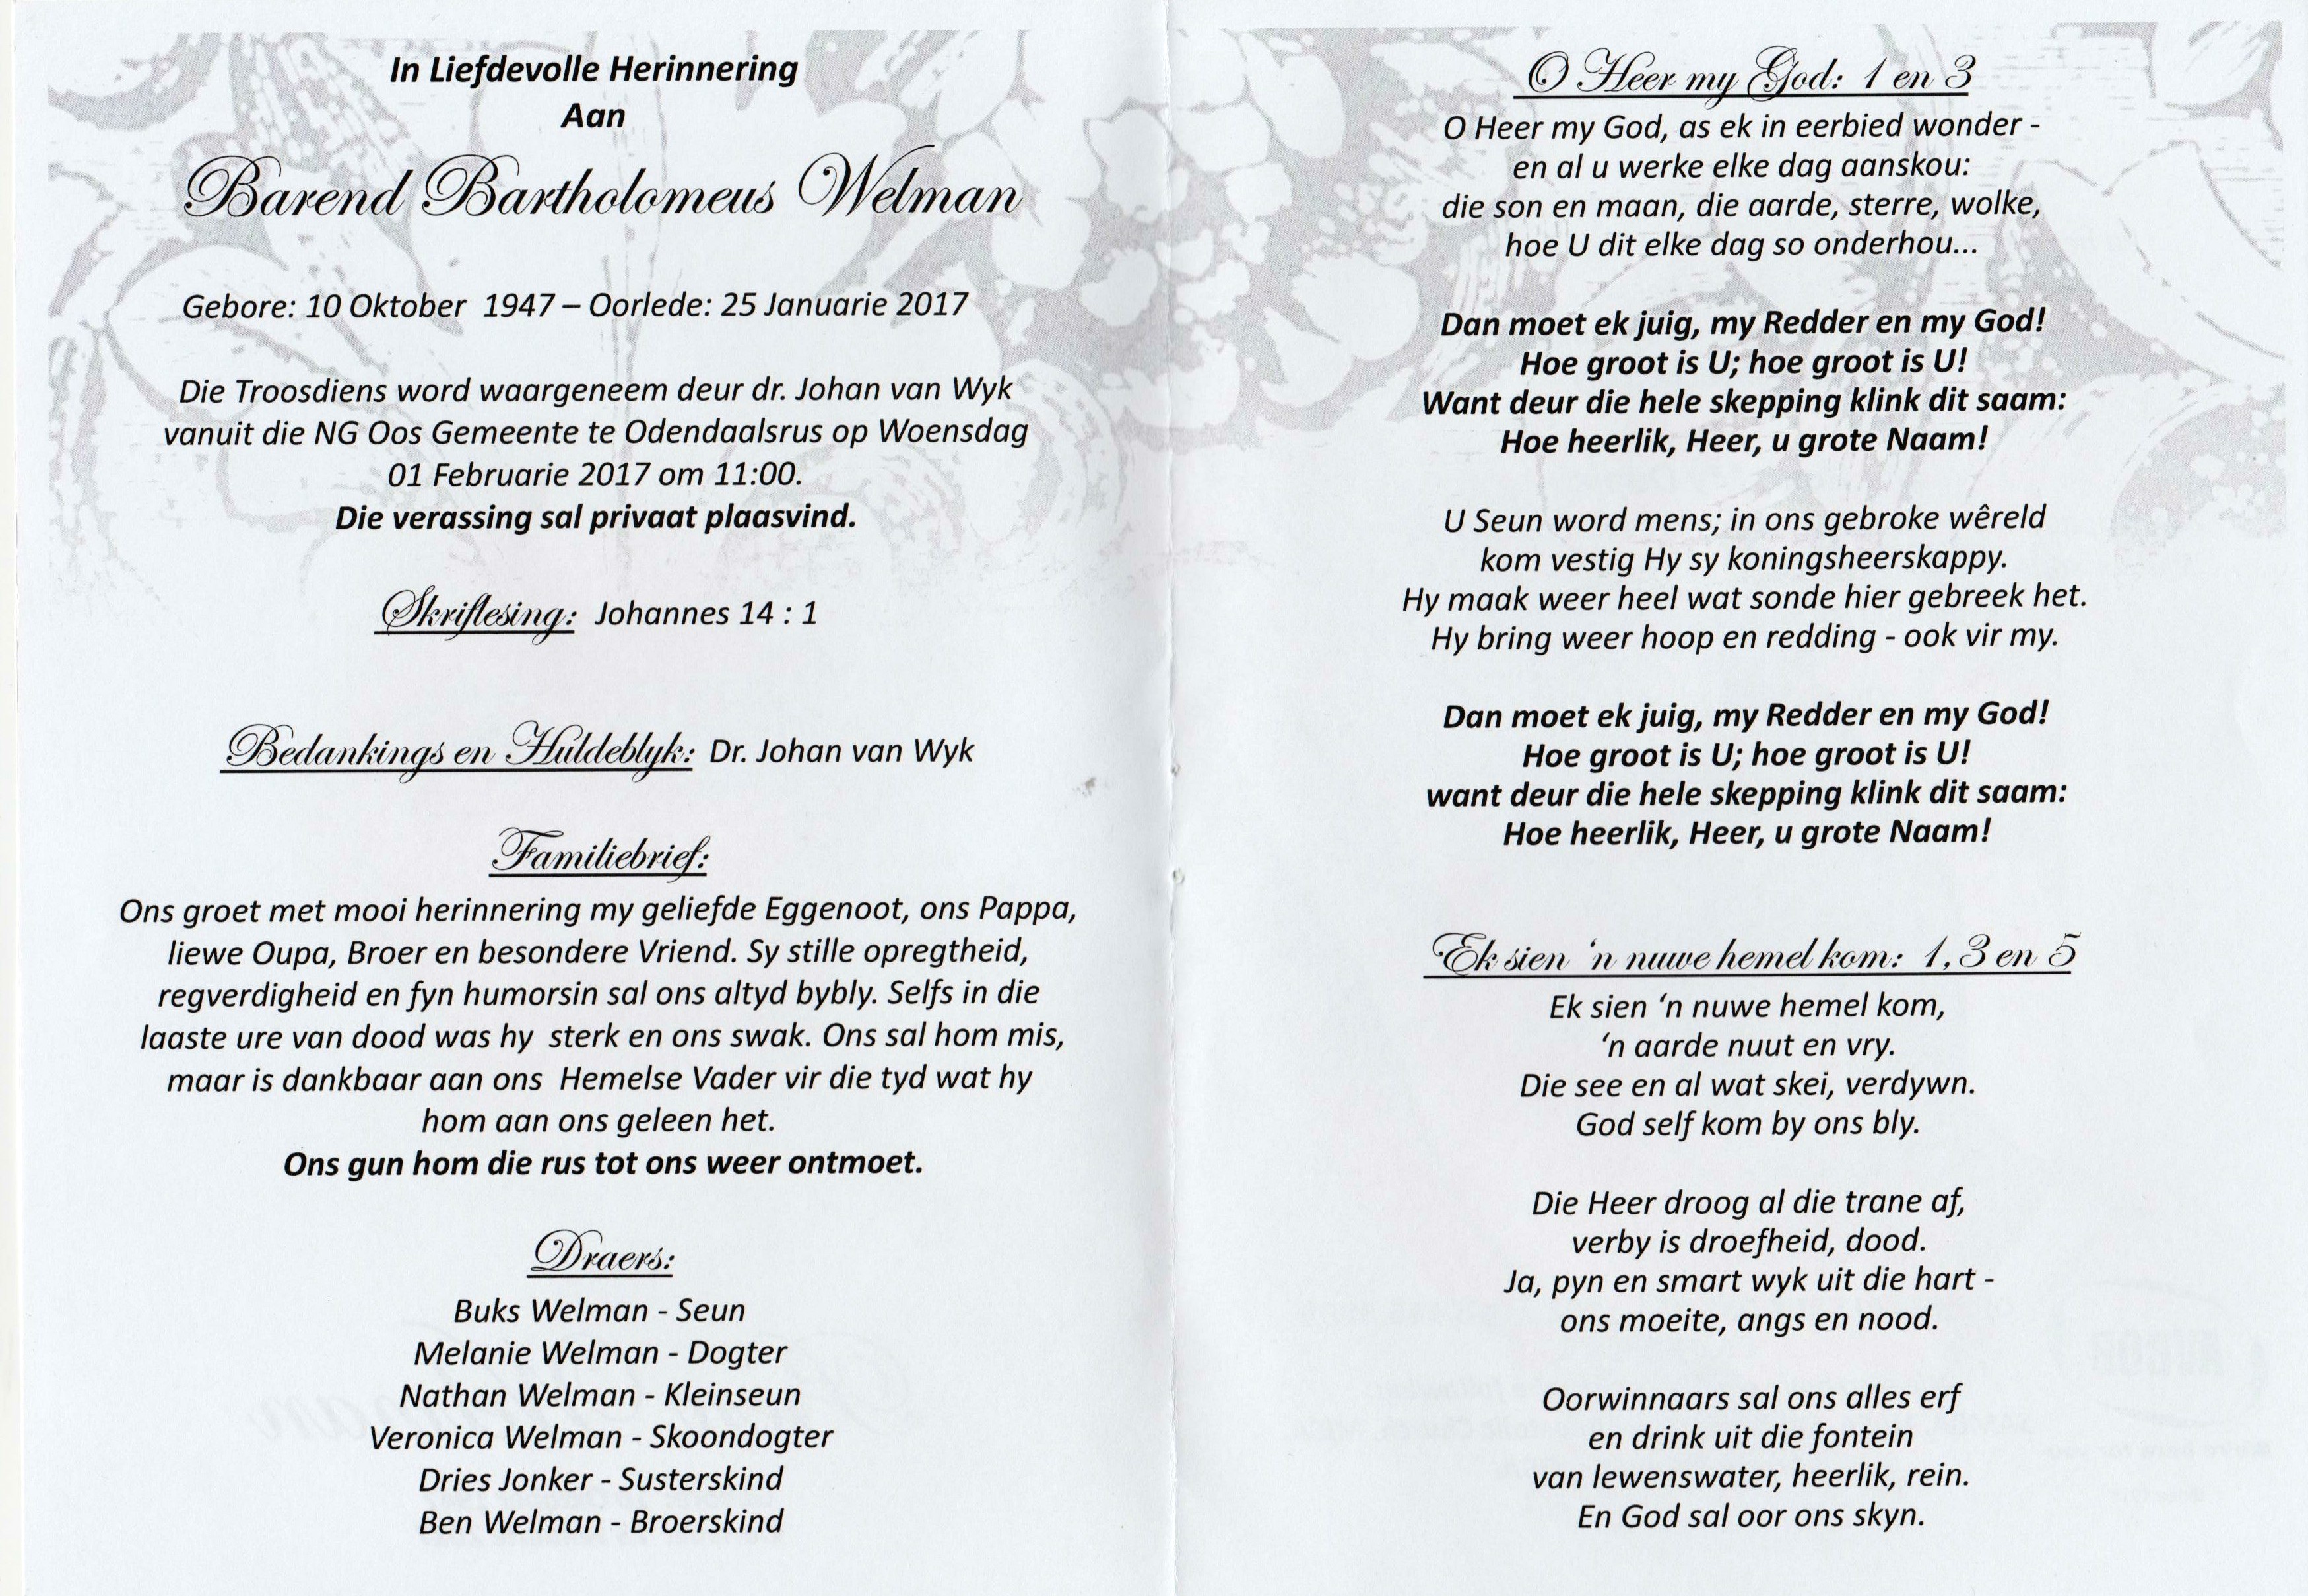 In Liefdevolle Herinnering
Aan
Barend Bartholomeus Welman
Gebore: 10 Oktober 1947 – Oorlede: 25 Januarie 2017
Die Troosdiens word waargeneem deur dr. Johan van Wyk
vanuit die NG Oos Gemeente te Odendaalsrus op Woensdag
01 Februarie 2017 om 11:00.
Die verassing sal privaat plaasvind.
Skriflesing: Johannes 14 : 1
Bedankings en Huldeblyk: Dr. Johan van Wyk
Familiebrief:
Ons groet met mooi herinnering my geliefde Eggenoot, ons Pappa,
liewe Oupa, Broer en besondere Vriend. Sy stille opregtheid,
regverdigheid en fyn humorsin sal ons altyd bybly. Selfs in die
laaste ure van dood was hy sterk en ons swak. Ons sal hom mis,
maar is dankbaar aan ons Hemelse Vader vir die tyd wat hy
hom aan ons geleen het.
Ons gun hom die rus tot ons weer ontmoet.
Draers:
Buks Welman - Seun
Melanie Welman - Dogter
Nathan Welman - Kleinseun
Veronica Welman - Skoondogter
Dries Jonker - Susterskind
Ben Welman - Broerskind
O Heer my God: 1 en 3
O Heer my God, as ek in eerbied wonder -
en al u werke elke dag aanskou:
die son en maan, die aarde, sterre, wolke,
hoe U dit elke dag so onderhou...
Dan moet ek juig, my Redder en my God!
Hoe groot is U; hoe groot is U!
Want deur die hele skepping klink dit saam:
Hoe heerlik, Heer, u grote Naam!
U Seun word mens; in ons gebroke wêreld
kom vestig Hy sy koningsheerskappy.
Hy maak weer heel wat sonde hier gebreek het.
Hy bring weer hoop en redding - ook vir my.
Dan moet ek juig, my Redder en my God!
Hoe groot is U; hoe groot is U!
want deur die hele skepping klink dit saam:
Hoe heerlik, Heer, u grote Naam!
Ek sien ‘n nuwe hemel kom: 1, 3 en 5
Ek sien ‘n nuwe hemel kom,
‘n aarde nuut en vry.
Die see en al wat skei, verdywn.
God self kom by ons bly.
Die Heer droog al die trane af,
verby is droefheid, dood.
Ja, pyn en smart wyk uit die hart -
ons moeite, angs en nood.
Oorwinnaars sal ons alles erf
en drink uit die fontein
van lewenswater, heerlik, rein.
En God sal oor ons skyn.